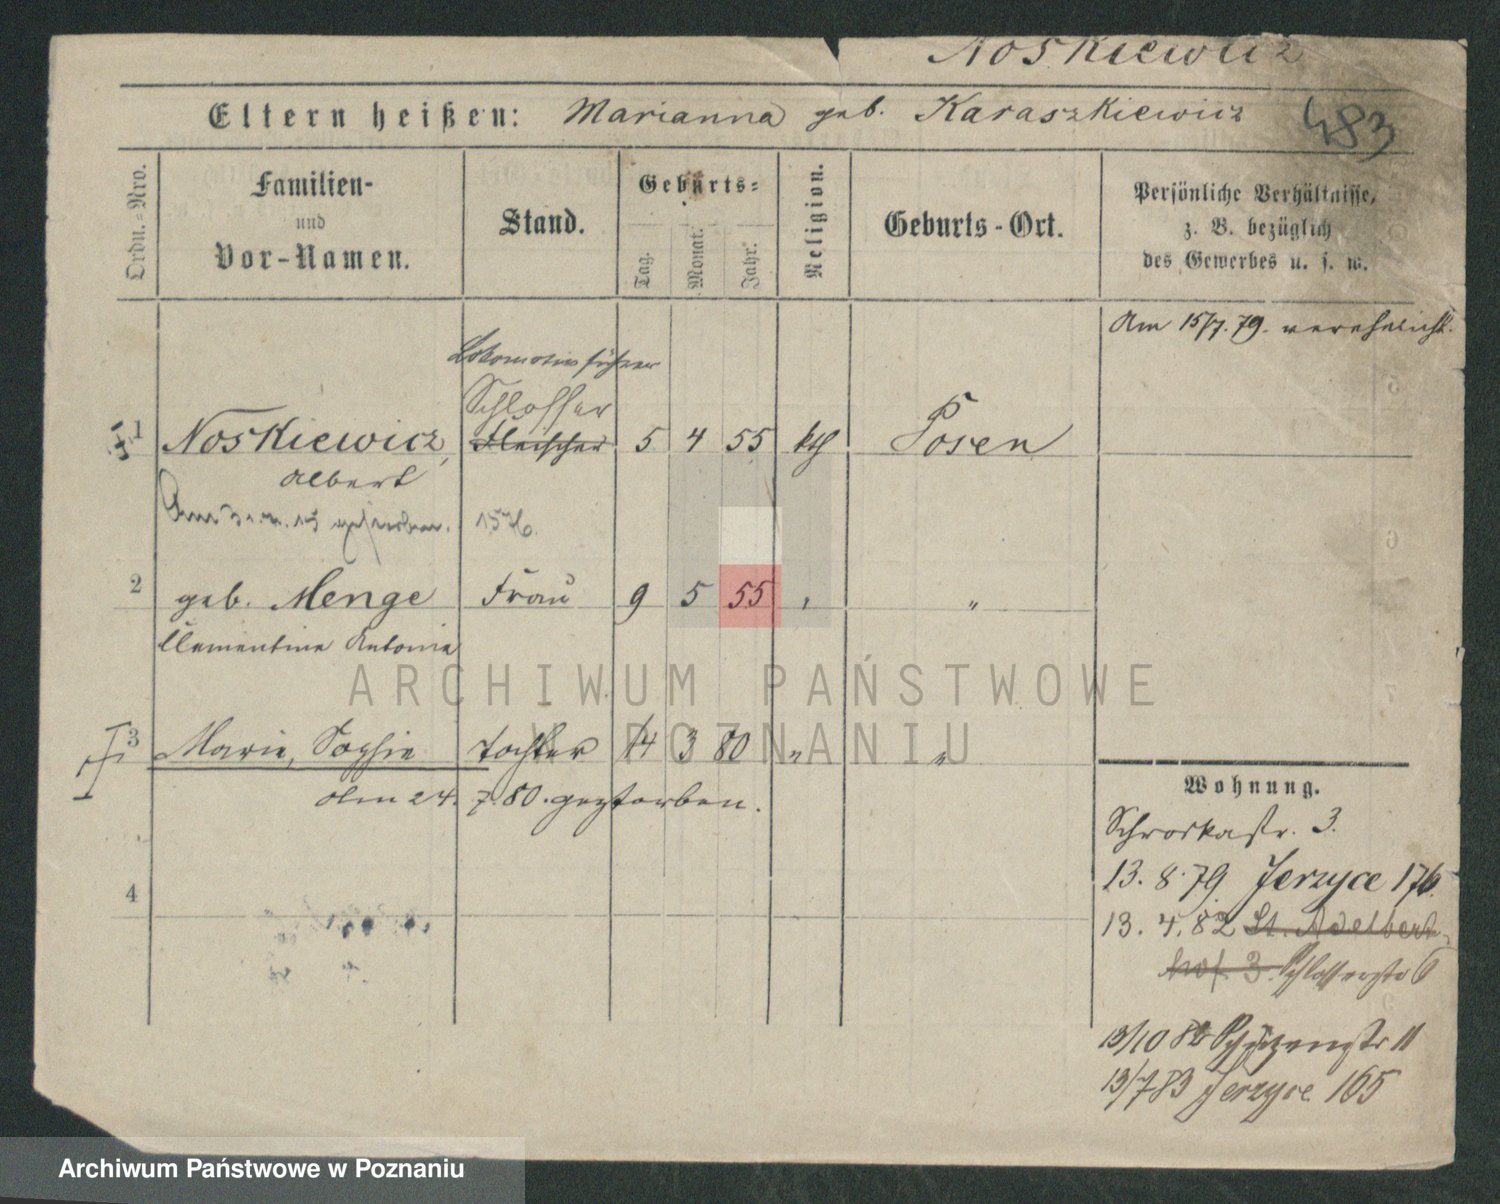 Noskiewicz
Eltern heißen: Marianna geb. Karaszkiewicz 483
Ordn.=Nro.
Familien-
und
Vor-Namen.
Stand.
Geburts=
Tag.
Monat.
Jahr.
Religion.
Geburts-Ort.
Persönliche Verhältnisse,
z. B. bezüglich
des Gewerbes u. s. w.
Am 15/7. 79. verehelicht.
Lokomotivführer
Schlosser
1 Noskiewicz, Fleischer 5 4 55 kth Posen
Albert
gestorben. 1576.
2 geb. Menge Frau 9 5 55 " "
Clementine Antonie
3 Marie, Sophie Tochter 14 3 80 " "
Am 24. 7. 80. gestorben.
4
Wohnung.
Schrodkastr. 3.
13. 8. 79 Jerzyce 176.
13. 4. 82 St. Adelbert-
hof 3. Schlosserstr 6
13/10 82 Schützenstr 11
13/7 83 Jerzyce 165
ARCHIWUM PAŃSTWOWE
W POZNANIU
Archiwum Państwowe w Poznaniu